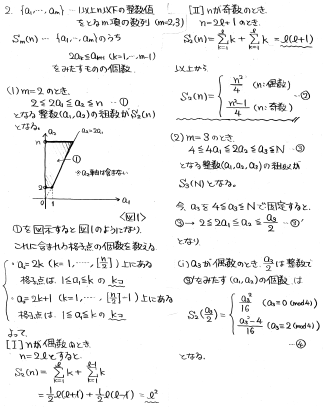 2. {a₁, …, aₘ} … 1以上n以下の整数値
をとるm項の数列 (m=2,3)
Sₘ(n) … {a₁, …, aₘ}のうち
2aₖ≦aₖ₊₁ (k=1, …, m-1)
をみたすものの個数
(1) m=2のとき
2≦2a₁≦a₂≦n …①
となる整数(a₁,a₂)の組数がS₂(n)
となる。
a₂
a₂=2a₁
n
①
※a₂軸は含まない
2
0
1
a₁
<図1>
①を図示すると図1のようになり、
これに含まれる格子点の個数を数える
・a₂=2k (k=1, …, [n/2])上にある
格子点は 1≦a₁≦kの kコ
・a₂=2k+1 (k=1, …, [n/2]-1)上にある
格子点は 1≦a₁≦kの kコ
よって
[Ⅰ] nが偶数のとき
n=2ℓとすると
S₂(n) = Σk + Σk
= ½ℓ(ℓ+1) + ½ℓ(ℓ-1) = ℓ²
[Ⅱ] nが奇数のとき
n=2ℓ+1のとき
S₂(n) = Σk + Σk = ℓ(ℓ+1)
以上から
S₂(n) = { n²/4 (n:偶数)
n²-1/4 (n:奇数) …②
(2) m=3のとき
4≦4a₁≦2a₂≦a₃≦N …③
となる整数(a₁,a₂,a₃)の組数が
S₃(N)となる。
今、a₃を4≦a₃≦Nで固定すると
③→2≦2a₁≦a₂≦a₃/2 …③'
となり
(i) a₃が偶数のとき a₃/2は整数で
③'をみたす(a₁,a₂)の個数は
S₂(a₃/2) = { a₃²/16 (a₃≡0 (mod4))
a₃²-4/16 (a₃≡2 (mod4))
…④
となる.